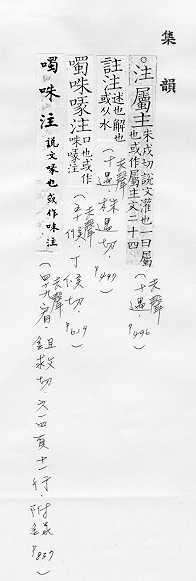 集韻
。注屬主朱戍切說文灌也一曰屬
也或作屬主文二十四
(去聲十遇.P496)
註注述也解也
或从水
(去聲十遇.株遇切.P497)
噣咮喙注口也或作
咮喙注
(去聲五十候.丁候切.P619)
噣咮注說文喙也或作咮注
(去聲四九宥.鉏救切.六一四頁十一行.附錄P837)